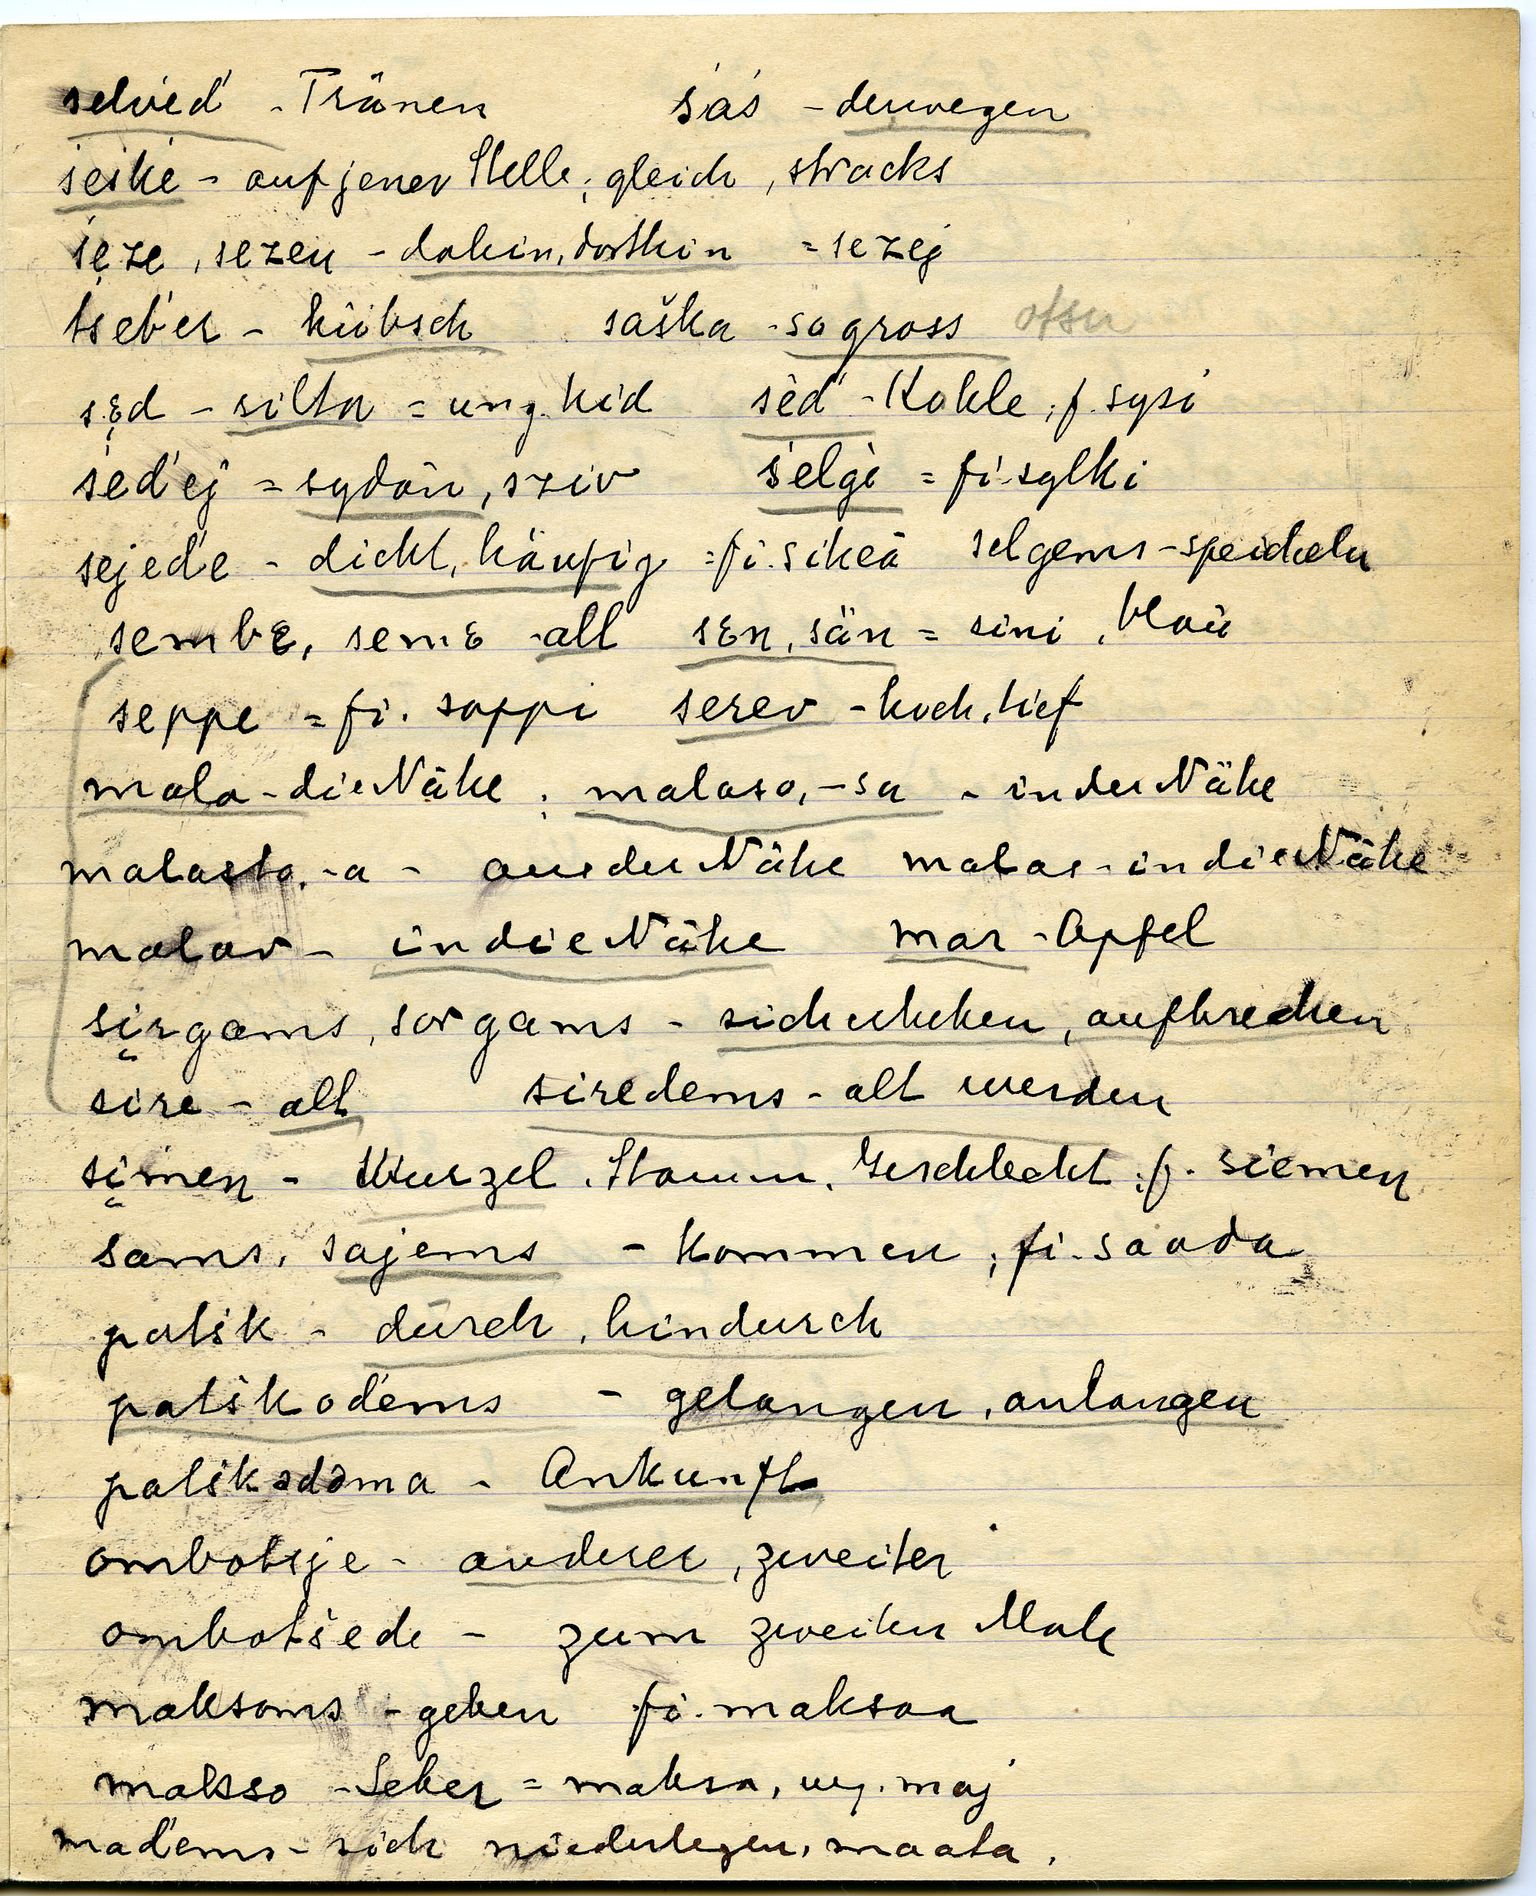 selved' - Tränen śas - deswegen
śeske - auf jener Stelle; gleich, stracks
śeze, sezen - dahin, dorthin = sezej
tseb'er - hübsch saška - so gross otsu
sed - silta = ung. hid śed' - Kohle; f. sysi
śed'ej = sydän, sziv śelgi = fi. sylki
sejed'e - dicht, häufig = fi. sikeä selgems - speicheln
sembɛ, semɛ - all sɛn, sän = sini, blau
seppe = fi. sappi serev - hoch, tief
mala - die Nähe; malaso, -sa - in der Nähe
malasto, -a - aus der Nähe malas - in die Nähe
malav - in die Nähe mar - Apfel
sirgams, sorgams - sich erheben, aufbrechen
sire - alt siredems - alt werden
simen - Wurzel, Stamm, Geschlecht; f. siemen
sams, sajems - kommen; fi. saada
patśk - durch, hindurch
patśkod'ems - gelangen, anlangen
patśkədəma - Ankunft
ombotsje - anderer, zweiter
ombotśede - zum zweiten Male
maksoms - geben fi. maksaa
makso - Leber = maksa, ug. maj
mad'ems - sich niederlegen, maata.